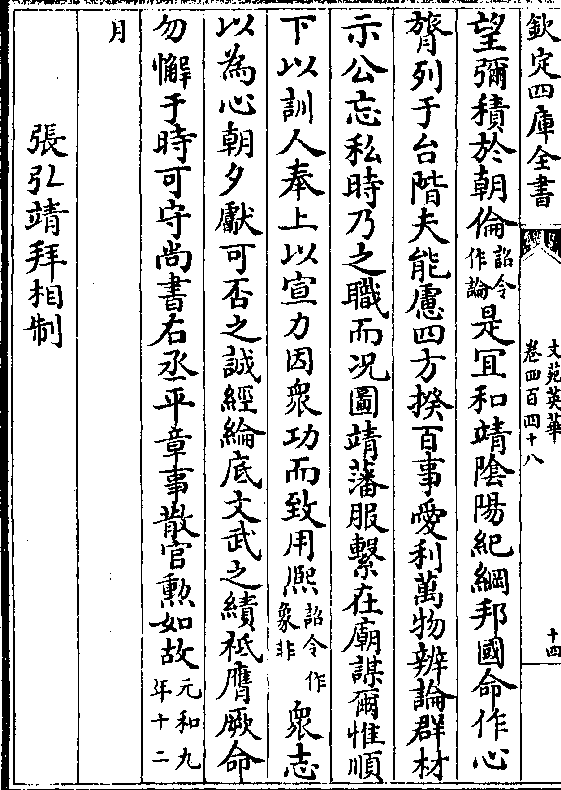 欽定四庫全書
文苑英華
卷四百四十八
十四
望彌積於朝倫詔令作論是宜和靖陰陽紀綱邦國命作心
膂列于台階夫能慮四方揆百事愛利萬物辨論群材
示公忘私時乃之職而况圖靖藩服繫在廟謀爾惟順
下以訓人奉上以宣力因衆功而致用熈詔令作象非衆志
以為心朝夕獻可否之誠經綸底文武之績祇膺厥命
勿懈于時可守尚書右丞平章事散官勲如故元和九年十二
月
張弘靖拜相制